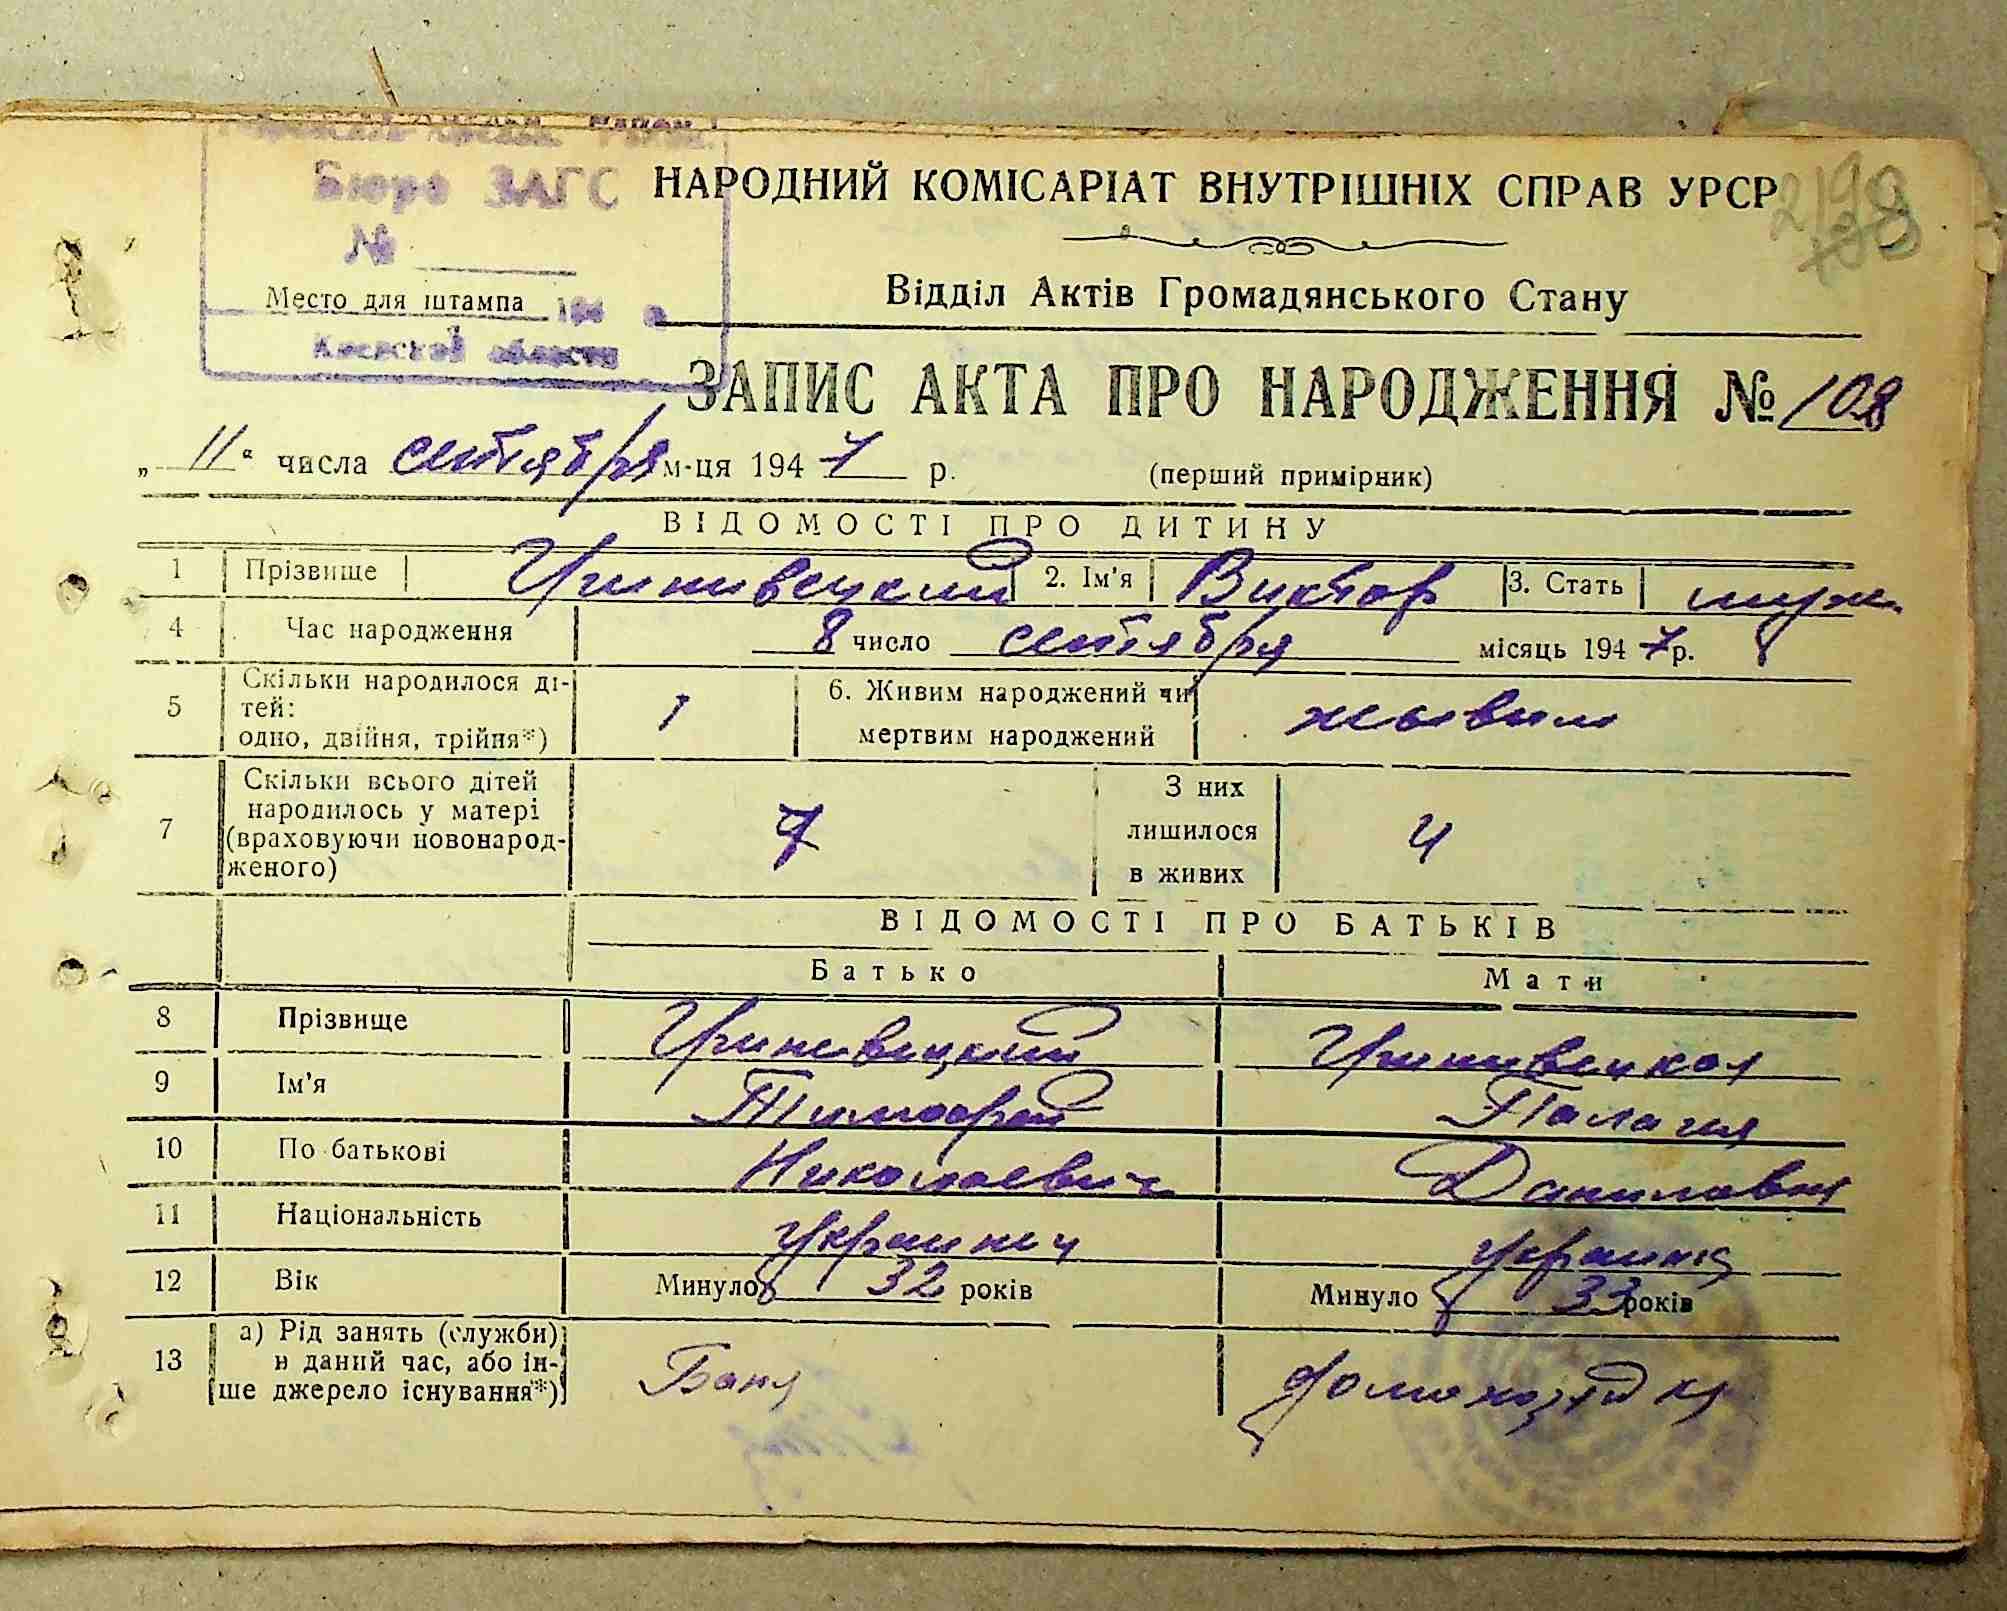 Бюро ЗАГС
№
Место для штампа 194 г.
Киевской области
НАРОДНИЙ КОМІСАРІАТ ВНУТРІШНІХ СПРАВ УРСР
Відділ Актів Громадянського Стану
ЗАПИС АКТА ПРО НАРОДЖЕННЯ № 108
„11“ числа сентября м-ця 1947 р. (перший примірник)
ВІДОМОСТІ ПРО ДИТИНУ
1 Прізвище Гриневецкий 2. Ім'я Виктор 3. Стать муж.
4 Час народження 8 число сентября місяць 1947 р.
5 Скільки народилося ді-
тей:
одно, двійня, трійня*) 1
6. Живим народжений чи
мертвим народжений живым
7 Скільки всього дітей
народилось у матері
(враховуючи новонарод-
женого) 7
З них
лишилося
в живих 4
ВІДОМОСТІ ПРО БАТЬКІВ
Батько Мати
8 Прізвище Гриневецкий Гриневецкая
9 Ім'я Тимофей Палагия
10 По батькові Николаевич Даниловна
11 Національність украинец украинка
12 Вік Минуло 32 років Минуло 33 років
13 а) Рід занять (служби)
в даний час, або ін-
ше джерело існування*)
домохозяйка